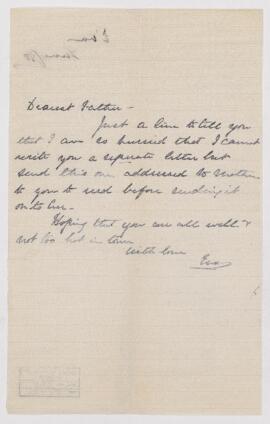 Dearest Father -
Just a line to tell you
that I am so hurried that I cannot
write you a separate letter but
send this one addressed to Mother
to you to read before sending it
on to her.
Hoping that you are all well &
not too hot in town
With love